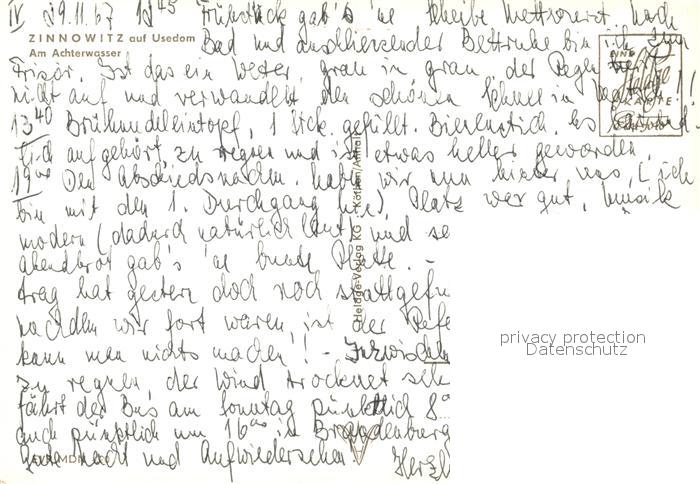 IV 29.11.67 12⁴⁵ Frühstück gab's 'ne Scheibe Mettwurst, nach
ZINNOWITZ auf Usedom
Am Achterwasser
Bad und anschliessender Bettruhe bin ich zum
EINE
Frisör. Ist das ein Wetter, grau in grau, der Regen hört
nicht auf und verwandelt den schönen Schnee in Matsch!
KARTE
13⁴⁰ Brühnudeleintopf, 1 Stck. gefüllt. Bienenstich. Es hat
lich aufgehört zu regnen und ist etwas heller geworden.
19⁰⁰ Den Abschiedsnachm. haben wir nun hinter uns, (ich
bin mit dem 1. Durchgang hin), Platz war gut, Musik
modern (dadurch natürlich laut) und se
Abendbrot gab's 'ne bunte Platte. -
trag hat gestern doch noch stattgefu
nachdem wir fort waren, ist der Refe
kann man nichts machen!! - Inzwischen
zu regnen, der Wind trocknet seh
fährt der Bus am Sonntag pünktlich 8⁰⁰
auch pünktlich um 16⁰⁰ in Brandenburg
Gute Nacht und Aufwiedersehen. Herzl
Heldge-Verlag KG Köthen/Anhalt
privacy protection
Datenschutz